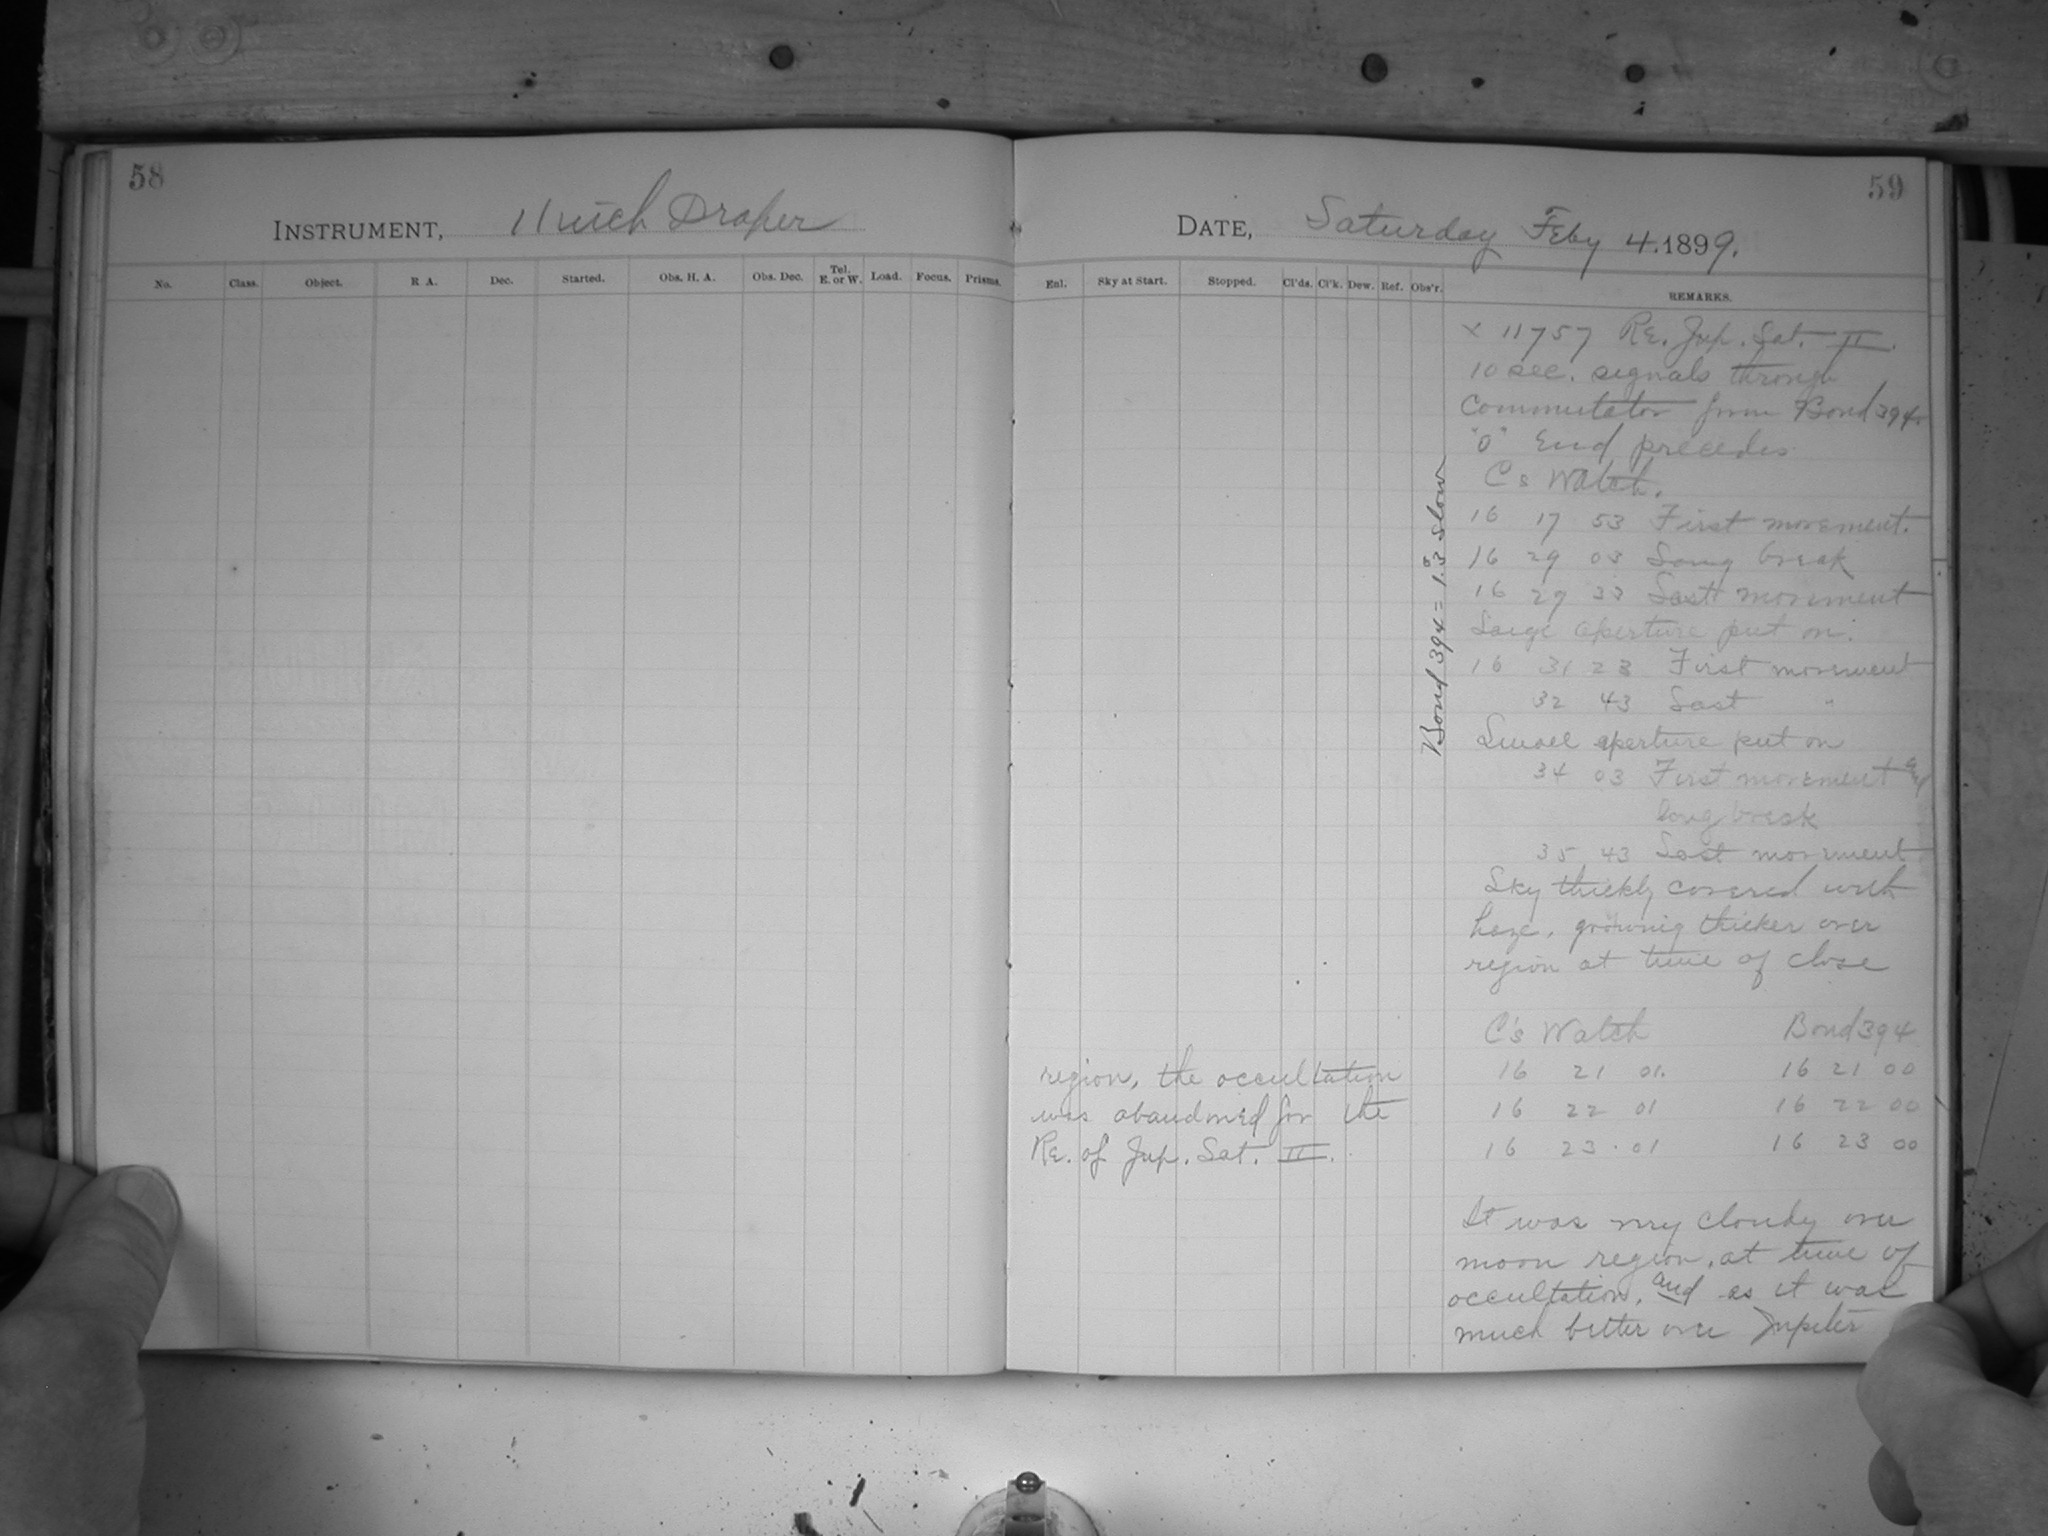 58
INSTRUMENT, 11 inch Draper
No. Class. Object. R A. Dec. Started. Obs. H. A. Obs. Dec. Tel. E. or W. Load. Focus. Prisms.
59
DATE, Saturday Feby 4. 1899.
Enl. Sky at Start. Stopped. Cl'ds. Cl'k. Dew. Ref. Obs'r. REMARKS.
x 11757 RE. Jup. Sat. II.
10 sec. signals through
Commutator from Bond 394.
"0" End precedes
C's Watch.
16 17 53 First movement.
16 29 03 Long break
16 29 33 Last movement
Large aperture put on.
16 31 23 First movement
32 43 Last "
Small aperture put on
34 03 First movement and
long break
35 43 Last movement
Sky thickly covered with
haze, growing thicker over
region at time of close
Bond 394 = 1.3s slow
C's Watch Bond 394
16 21 01. 16 21 00
16 22 01 16 22 00
16 23 . 01 16 23 00
It was very cloudy over
moon region, at time of
occultation, and as it was
much better over Jupiter
region, the occultation
was abandoned for the
RE. of Jup. Sat. II.